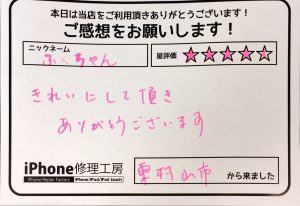 本日は当店をご利用頂きありがとうございます!
ご感想をお願いします!
ニックネーム
ふくちゃん
星評価 ★★★★★
きれいにして頂き
ありがとうございます
iPhone修理工房
iPhone Repair Factory iPhone/iPad/iPod touch
東村山市 から来ました